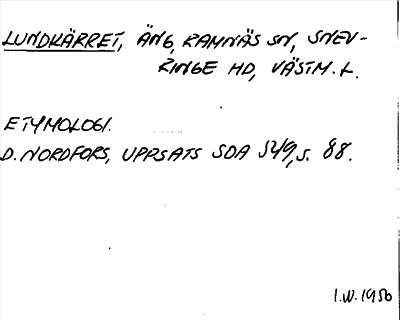 LUNDKÄRRET, ÄNG, RAMNÄS SN, SNEV-
RINGE HD, VÄSTM. L.
ETYMOLOGI.
D. NORDFORS, UPPSATS SDA 549, S. 88.
I.W. 1956